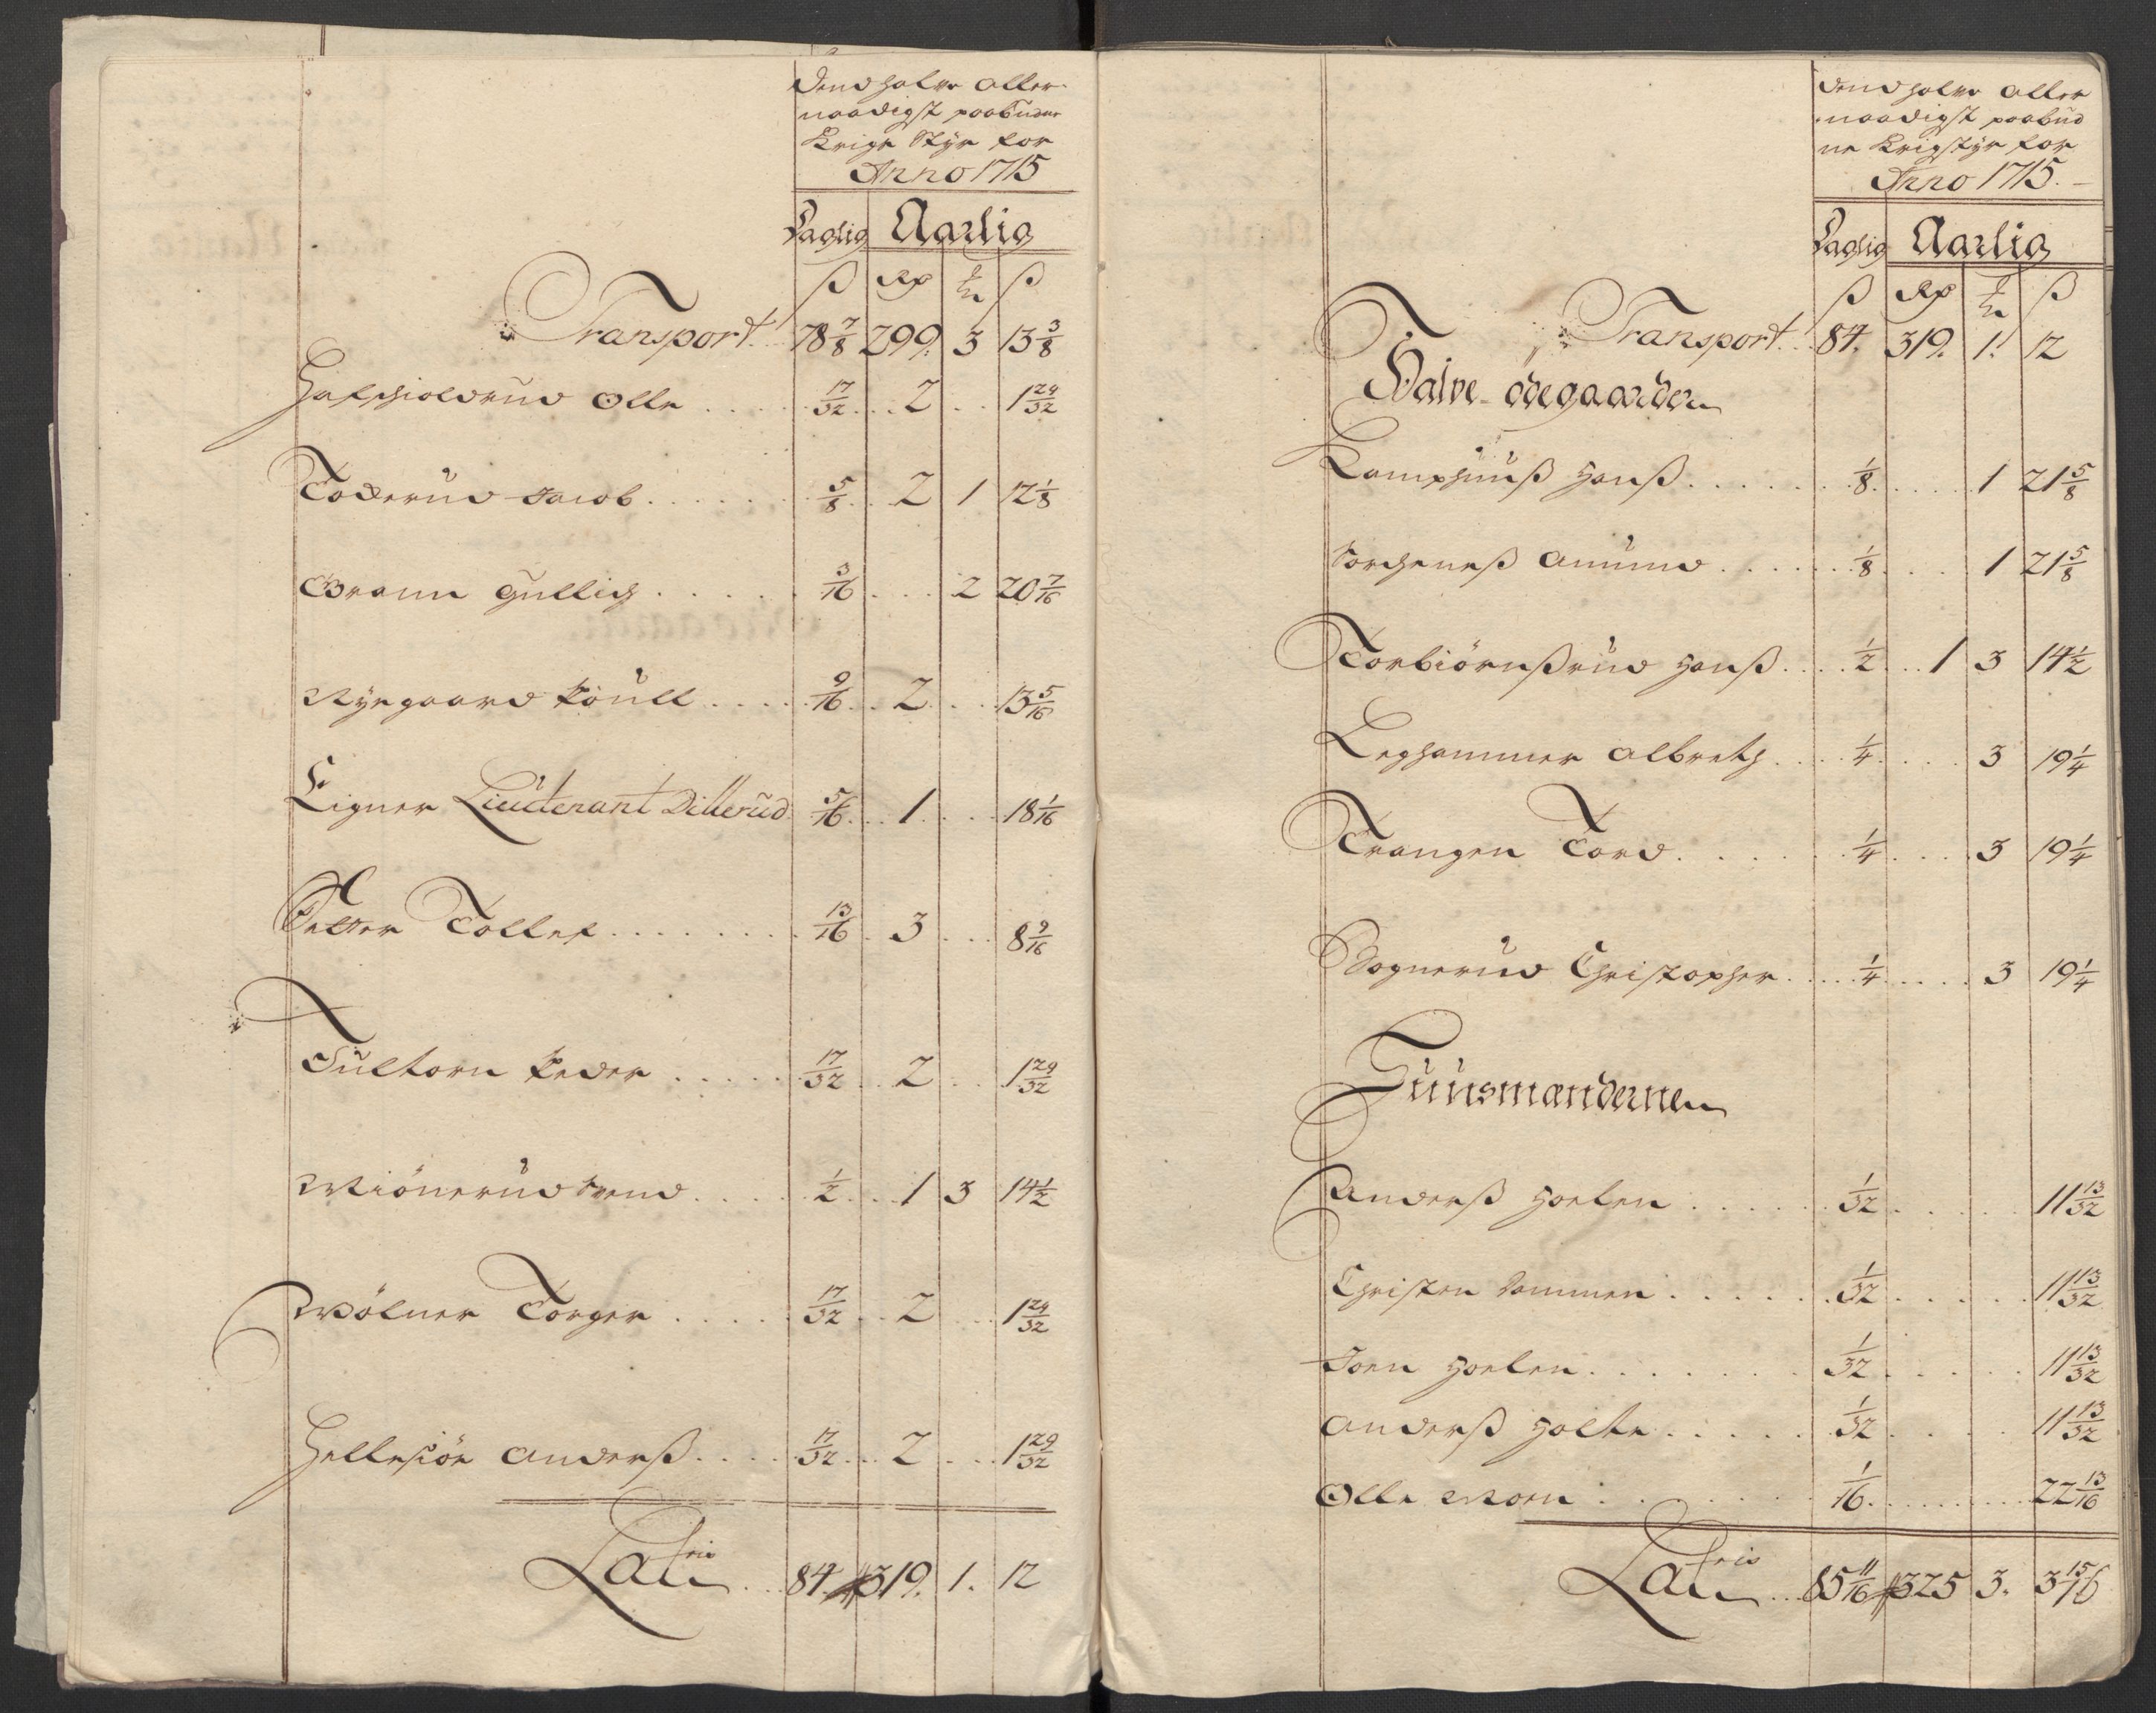 Dend halve aller-
naadigst paabudne
Krigs Styr for
Anno 1715
Daglig Aarlig
ß Rd ß
Transport 78 7/8 299. 3 13 3/8
Olle 17/32 2 1 29/32
Toverud Jacob 5/8 2 1 12 1/8
Braatn Gullich 3/16 2 20 7/16
Nyegaard Poull 9/16 2 13 5/16
Eigner Lieutenant Dillerud 5/16 1 18 1/16
Sætter Tollef 13/16 3 8 9/16
Peder 17/32 2 1 29/32
Miönerud Svend 1/2 1 3 14 1/2
Mölner Torger 17/32 2 1 29/32
Hellesiöe Anderß 17/32 2 1 29/32
Lateris 84. 319. 1. 12
Dend halve aller
naadigst paabud
ne Krigstyr for
Anno 1715.
Daglig Aarlig
ß Rd ß
Transport 84. 319. 1. 12
Halve ödegaarder
Kamphuuß Hanß 1/8 1 21 5/8
Amund 1/8 1 21 5/8
Torbiörnßrud Hanß 1/2 1 3 14 1/2
Leghammer Albreth 1/4 3 19 1/4
Trangen Tord 1/4 3 19 1/4
Wognerud Christopher 1/4 3 19 1/4
Huusmænderne
Anderß Hoelen 1/32 11 13/32
Christen Dammen 1/32 11 13/32
Joen Hoelen 1/32 11 13/32
Anderß Holte 1/32 11 13/32
Olle Moen 1/16 22 13/16
Lateris 85 11/16 325 3. 3 15/16